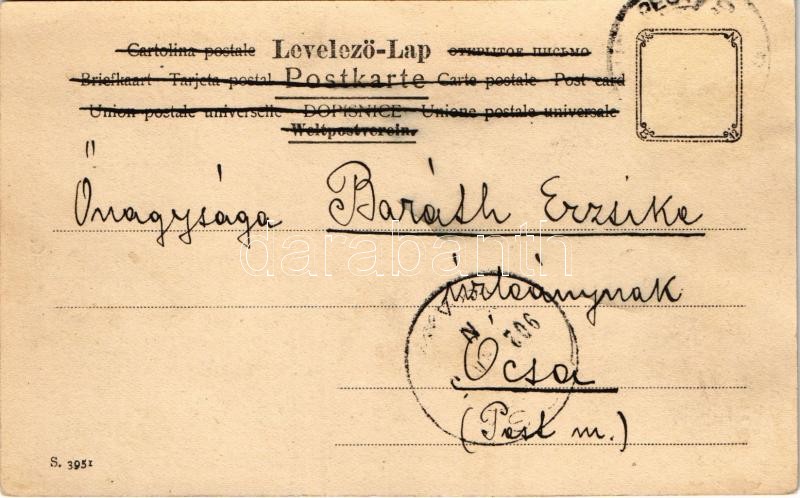 Cartolina postale Levelező-Lap ОТКРЫТОЕ ПИСЬМО
Briefkaart Tarjeta postal Postkarte Carte postale Post card
Union postale universelle DOPISNICE Unione postale universale
Weltpostverein.
Őnagysága Baráth Erzsike
úrleánynak
Ócsa
(Pest m.)
902
darabanth
S. 3951